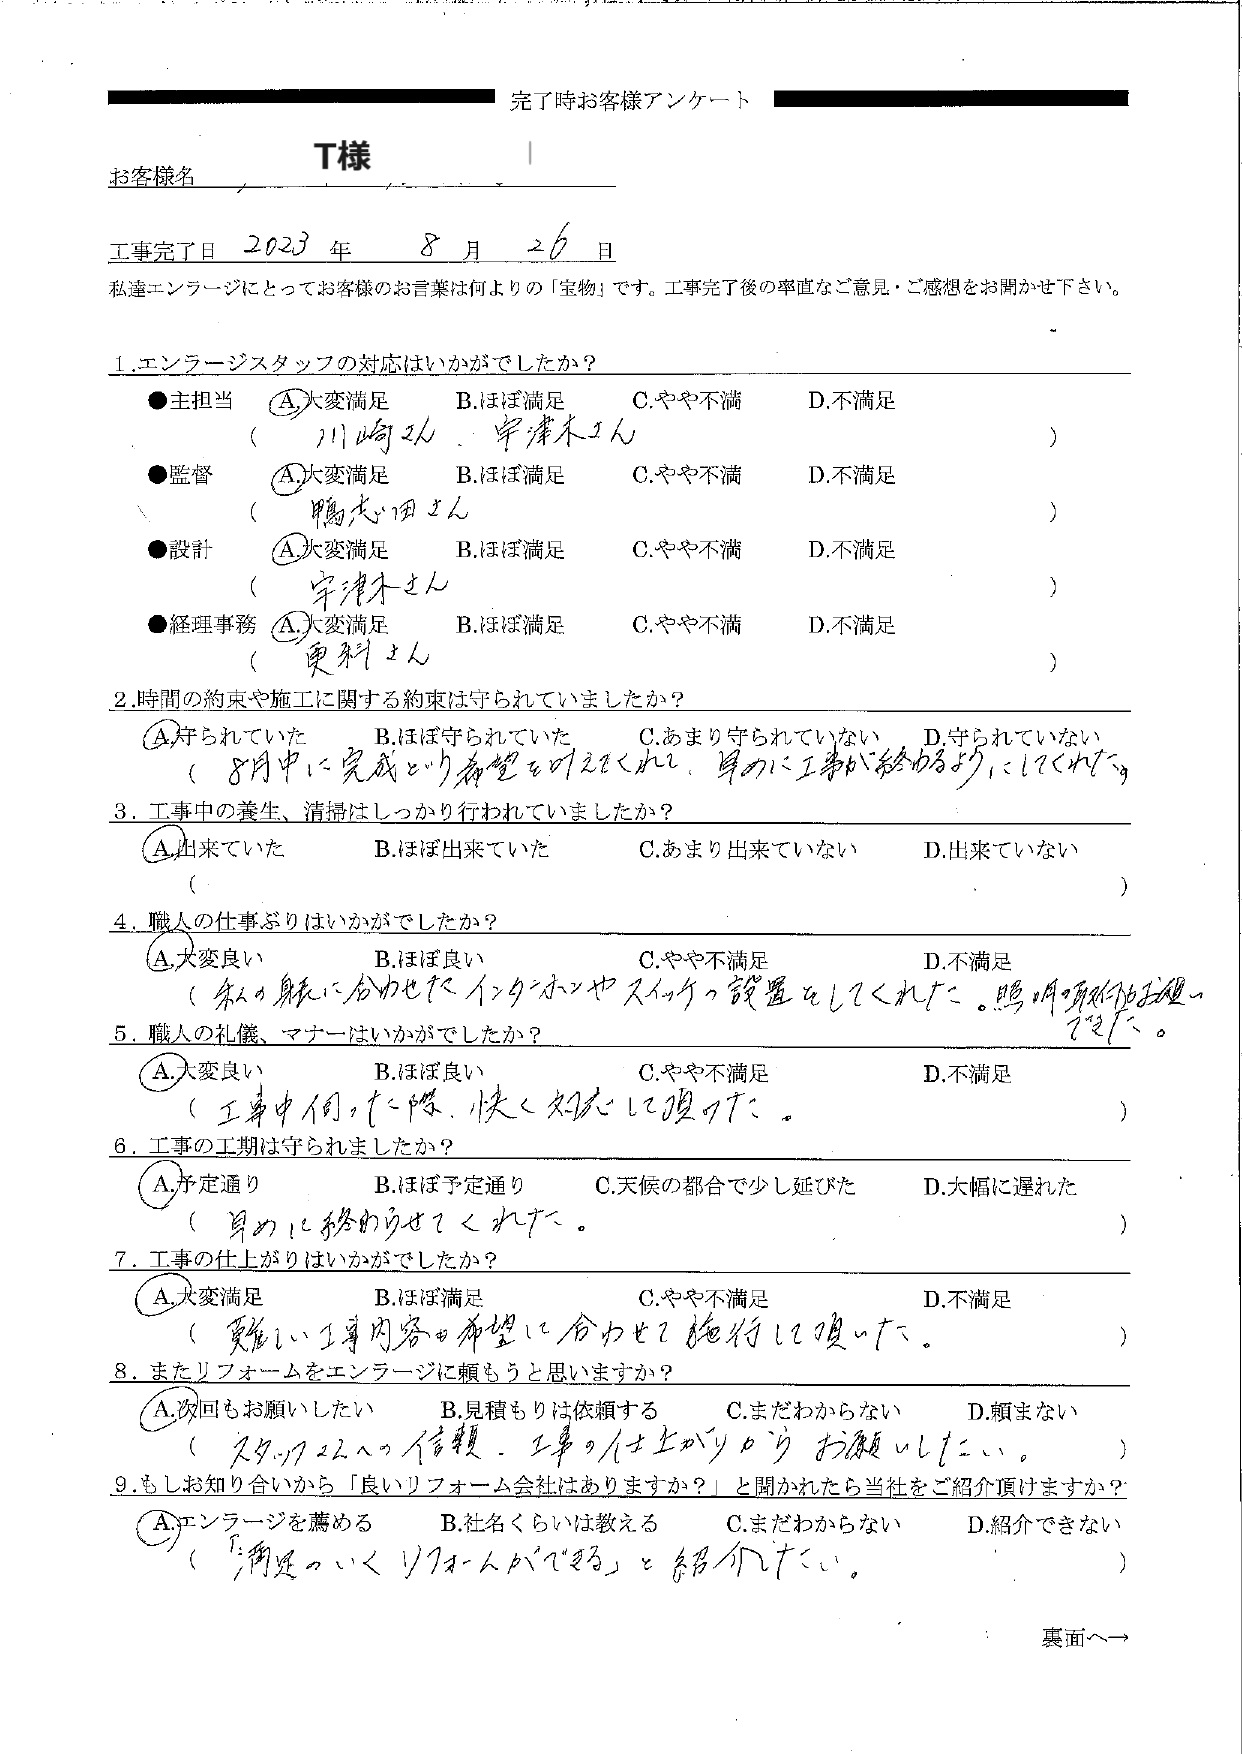 完了時お客様アンケート
T様
お客様名
工事完了日 2023 年 8 月 26 日
私達エンラージにとってお客様のお言葉は何よりの「宝物」です。工事完了後の率直なご意見・ご感想をお聞かせ下さい。
1.エンラージスタッフの対応はいかがでしたか?
●主担当 A.大変満足 B.ほぼ満足 C.やや不満 D.不満足
( 川崎さん 、 宇津木さん )
●監督 A.大変満足 B.ほぼ満足 C.やや不満 D.不満足
( 鴨志田さん )
●設計 A.大変満足 B.ほぼ満足 C.やや不満 D.不満足
( 宇津木さん )
●経理事務 A.大変満足 B.ほぼ満足 C.やや不満 D.不満足
( 更科さん )
2.時間の約束や施工に関する約束は守られていましたか?
A.守られていた B.ほぼ守られていた C.あまり守られていない D.守られていない
( 8月中に完成という希望を叶えてくれて、早めに工事が終わるようにしてくれた。
3. 工事中の養生、清掃はしっかり行われていましたか?
A.出来ていた B.ほぼ出来ていた C.あまり出来ていない D.出来ていない
( )
4. 職人の仕事ぶりはいかがでしたか?
A.大変良い B.ほぼ良い C.やや不満足 D.不満足
( 私の身長に合わせたインターホンやスイッチの設置をしてくれた。照明の取付もお願い
できた。
5. 職人の礼儀、マナーはいかがでしたか?
A.大変良い B.ほぼ良い C.やや不満足 D.不満足
( 工事中伺った際、快く対応して頂けた。 )
6. 工事の工期は守られましたか?
A.予定通り B.ほぼ予定通り C.天候の都合で少し延びた D.大幅に遅れた
( 早めに終わらせてくれた。 )
7. 工事の仕上がりはいかがでしたか?
A.大変満足 B.ほぼ満足 C.やや不満足 D.不満足
( 難しい工事内容も希望に合わせて施行して頂いた。 )
8. またリフォームをエンラージに頼もうと思いますか?
A.次回もお願いしたい B.見積もりは依頼する C.まだわからない D.頼まない
( スタッフさんへの信頼、工事の仕上がりからお願いしたい。 )
9.もしお知り合いから「良いリフォーム会社はありますか?」と聞かれたら当社をご紹介頂けますか?
A.エンラージを薦める B.社名くらいは教える C.まだわからない D.紹介できない
( 「満足のいくリフォームができる」と紹介したい。 )
裏面へ→